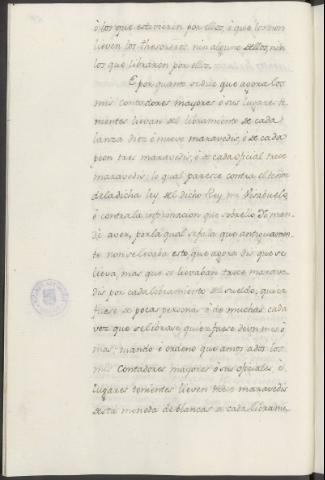 ó los que estovieren por ellos, é que los non
lieven los thesoreros, nin alguno dellos, nin
los que libraren por ellos.
E por quanto se dice que agora los
mis contadores mayores ó sus lugares te-
nientes lievan del libramiento de cada
lanza diez é nueve maravedis, é de cada
peon tres maravedis, é de cada oficial trece
maravedis; lo qual paresce contra el tenor
de la dicha ley del dicho Rey mi Visabuelo,
é contra la informacion que sobrello Yo man-
dé aver, por la qual se falla que antiguamen-
te non se levaba esto que agora dis que se
lieva, mas que se llevaban trece marave-
dis por cada libramiento de sueldo, quier
fuese de pocas personas ó de muchas cada
vez que se librase, quier fuese de un mes ó
mas; mando é ordeno que amos ados los
mis Contadores mayores ó sus oficiales, é
lugares tenientes lieven trece maravedis
desta moneda de blancas a cada librami-